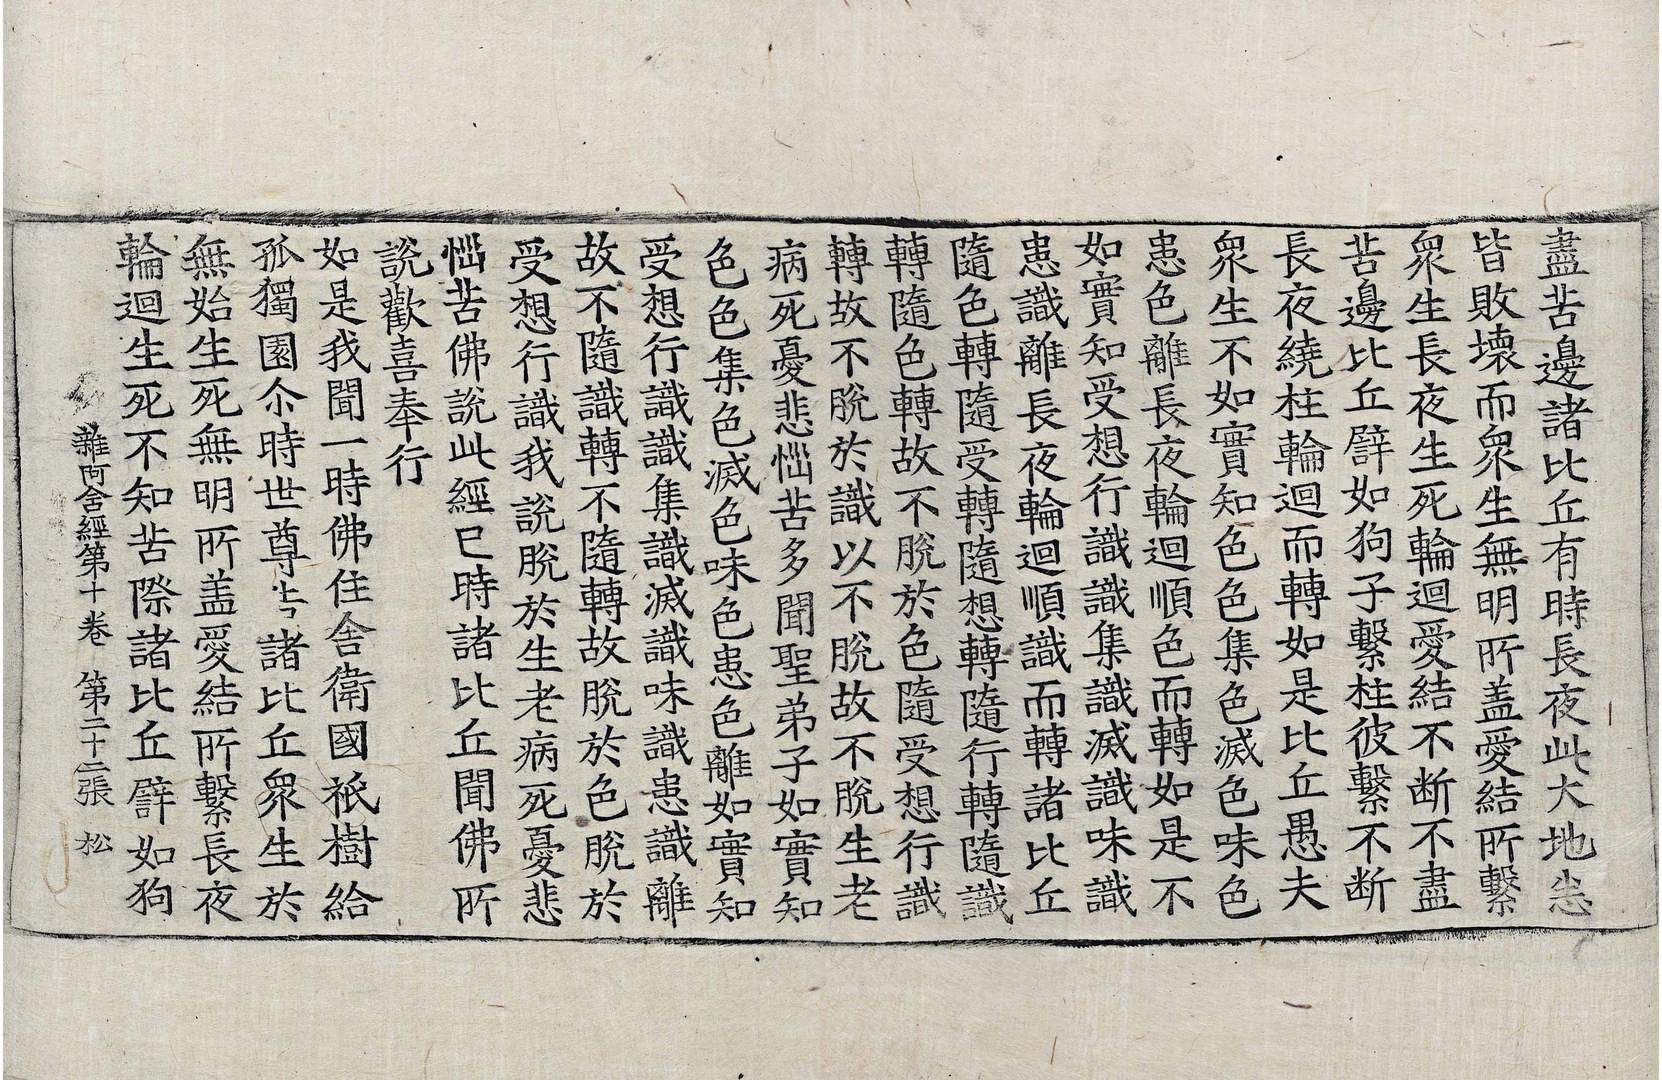 盡苦邊諸比丘有時長夜此大地悉
皆敗壞而衆生無明所盖愛結所繫
衆生長夜生死輪迴愛結不断不盡
苦邊比丘譬如狗子繫柱彼繫不断
長夜繞柱輪迴而轉如是比丘愚夫
衆生不如實知色色集色滅色味色
患色離長夜輪迴順色而轉如是不
如實知受想行識識集識滅識味識
患識離長夜輪迴順識而轉諸比丘
隨色轉隨受轉隨想轉隨行轉隨識
轉隨色轉故不脫於色隨受想行識
轉故不脫於識以不脫故不脫生老
病死憂悲惱苦多聞聖弟子如實知
色色集色滅色味色患色離如實知
受想行識識集識滅識味識患識離
故不隨識轉不隨轉故脫於色脫於
受想行識我說脫於生老病死憂悲
惱苦佛說此經已時諸比丘聞佛所
說歡喜奉行
如是我聞一時佛住舍衛國祇樹給
孤獨園尒時世尊告諸比丘衆生於
無始生死無明所盖愛結所繫長夜
輪迴生死不知苦際諸比丘譬如狗
雜阿含經第十卷 第二十二張 松